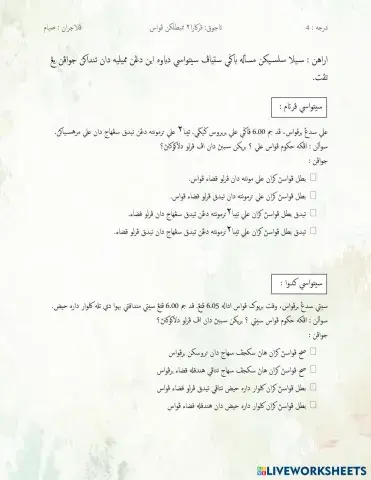 درجه : 4
تاجوق: ڤركارا٢ ممبطلكن ڤواس
ڤلاجرن : صيام
اراهن : سيلا سلسيكن مسأله باڬي ستياڤ سيتواسي دباوه اين دڠن ممبليه دان تنداكن جواڤن يڠ
تڤت.
سيتواسي ڤرتام :
علي سدڠ برڤواس. ڤد جم 6.00 ڤاڬي علي بربروس ڬيڬي. تيبا٢ علي ترمونته دڠن تيدق سڠهاج دان علي مرهسياكن.
سوألن : اڤكه حكوم ڤواس علي ؟ بريكن سببڽ دان اڤ ڤرلو دلاكوكنڽ؟
جواڤن :
بطل ڤواسڽ كران علي مونته دان ڤرلو قضاء ڤواس.
بطل ڤواسڽ كران علي ترمونته دان تيدق ڤرلو قضاء ڤواس.
تيدق بطل ڤواسڽ كران علي تيبا٢ ترمونته دڠن تيدق سڠهاج دان ڤرلو قضاء.
تيدق بطل ڤواسڽ كران علي تيبا٢ ترمونته دڠن تيدق سڠهاج دان تيدق ڤرلو قضاء.
سيتواسي كدوا :
سيتي سدڠ برڤواس. وقت بربوك ڤواس اداله 6.05 ڤتڠ. ڤد جم 6.00 ڤتڠ سيتي منداڤتي بهوا دي تله كلوار داره حيض.
سوألن : اڤكه حكوم ڤواس سيتي ؟ بريكن سببڽ دان اڤ ڤرلو دلاكوكنڽ؟
جواڤن :
صح ڤواسڽ كران هاڽ سكجڤ سهاج دان تروسكن برڤواس
صح ڤواسڽ كران هاڽ سكجڤ سهاج تتاڤي هندقله قضاء برڤواس
بطل ڤواسڽ كران كلوار داره حيض تتاڤي تيدق ڤرلو قضاء ڤواس
بطل ڤواسڽ كران كلوار داره حيض دان هندقله قضاء ڤواس
LIVEWORKSHEETS